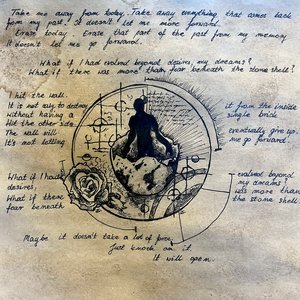 Take me away from today. Take away everything that comes back
from my past. It doesn't let me move forward.
Erase today. Erase that part of the past from my memory
It doesn't let me go forward.
What if I had evolved beyond desires, my dreams?
What if there was more than fear beneath the stone shell?
I hit the wall.
It is not easy to destroy it from the inside
Without having a single brick.
Hit the other side
The wall will eventually give up
It's not letting me go forward.
What if I had evolved beyond
desires, my dreams
What if there was more than
fear beneath the stone shell
Maybe it doesn't take a lot of force
Just knock on it.
It will open.